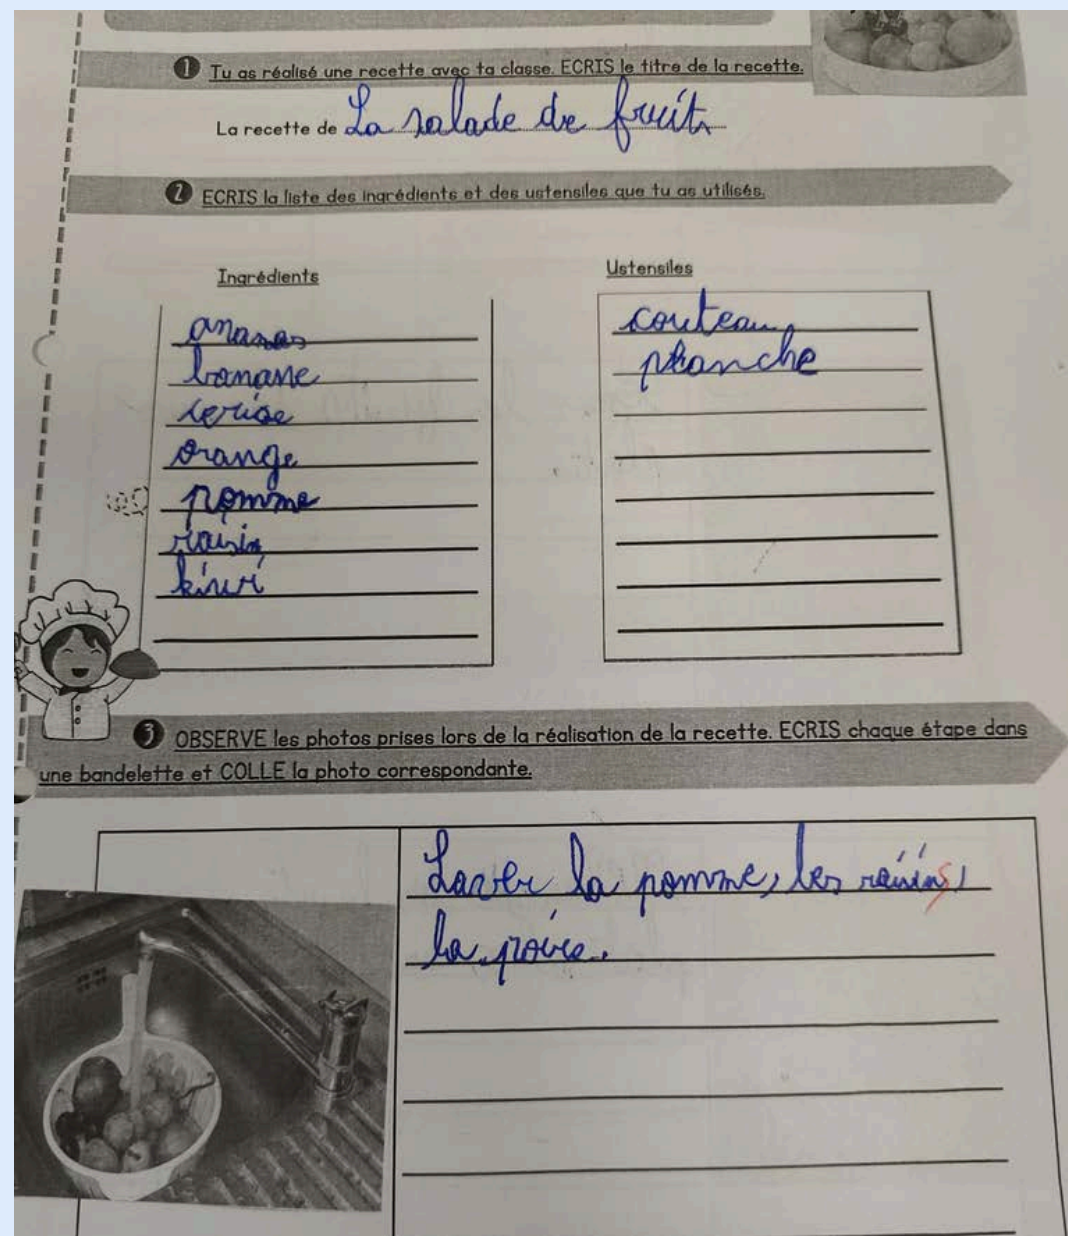 1 Tu as réalisé une recette avec ta classe. ECRIS le titre de la recette.
La recette de La salade de fruits
2 ECRIS la liste des ingrédients et des ustensiles que tu as utilisés.
Ingrédients
ananas
banane
cerise
orange
pomme
raisin
kiwi
Ustensiles
couteau,
planche
3 OBSERVE les photos prises lors de la réalisation de la recette. ECRIS chaque étape dans
une bandelette et COLLE la photo correspondante.
Laver la pomme, les raisins,
la poire.